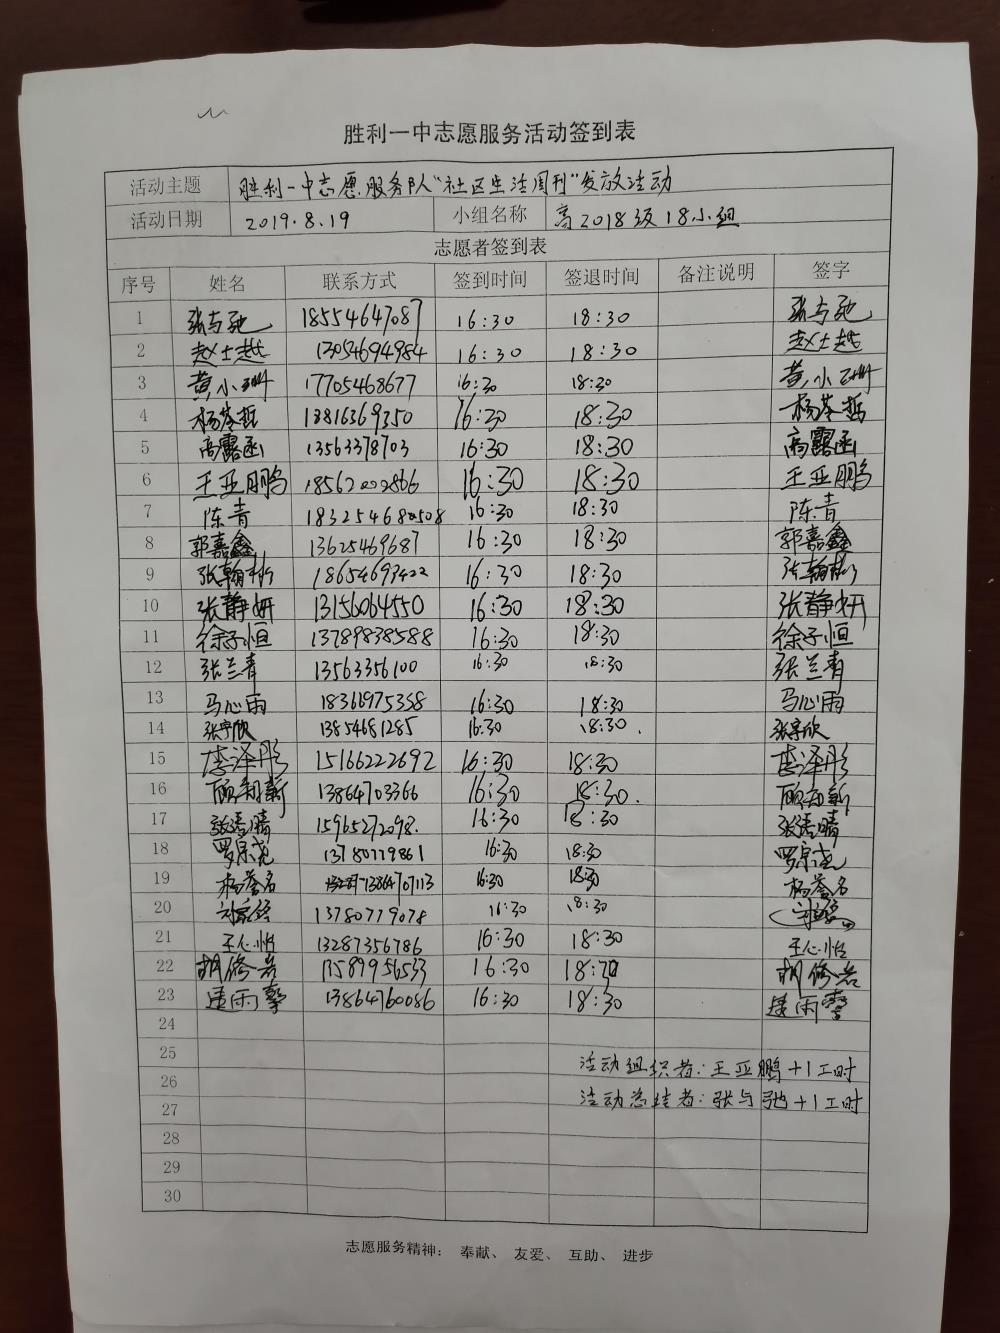 胜利一中志愿服务活动签到表
活动主题 胜利一中志愿服务队“社区生活周刊”发放活动
活动日期 2019.8.19 小组名称 高2018级18小组
志愿者签到表
序号 姓名 联系方式 签到时间 签退时间 备注说明 签字
1 张与弛 18554647087 16:30 18:30 张与弛
2 赵士越 13054694984 16:30 18:30 赵士越
3 黄小珊 17705468677 16:30 18:30 黄小珊
4 杨苓哲 13816369350 16:30 18:30 杨苓哲
5 高露函 13563378703 16:30 18:30 高露函
6 王亚鹏 18562202866 16:30 18:30 王亚鹏
7 陈青 16:30 18:30 陈青
8 郭嘉鑫 13625469687 16:30 18:30 郭嘉鑫
9 张翰彬 18654693422 16:30 18:30 张翰彬
10 张静妍 13156064550 16:30 18:30 张静妍
11 徐子恒 13789838588 16:30 18:30 徐子恒
12 张兰青 13563356100 16:30 18:30 张兰青
13 马心雨 18366975358 16:30 18:30 马心雨
14 张宇欣 13854681285 16:30 18:30. 张宇欣
15 李泽彤 15166222692 16:30 18:30 李泽彤
16 顾翔新 13864703366 16:30 18:30.
17 15965272098. 16:30 18:30
18 13780779861 16:30 18:30
19 杨誉名 13864707113 16:30 18:30 杨誉名
20 13780779078 16:30 18:30
21 王心怡 13287356786 16:30 18:30 王心怡
22 胡修岩 13589956533 16:30 18:30 胡修岩
23 13864760086 16:30 18:30
24
25 活动组织者:王亚鹏+1工时
26
27 活动总结者:张与弛+1工时
28
29
30
志愿服务精神： 奉献、 友爱、 互助、 进步